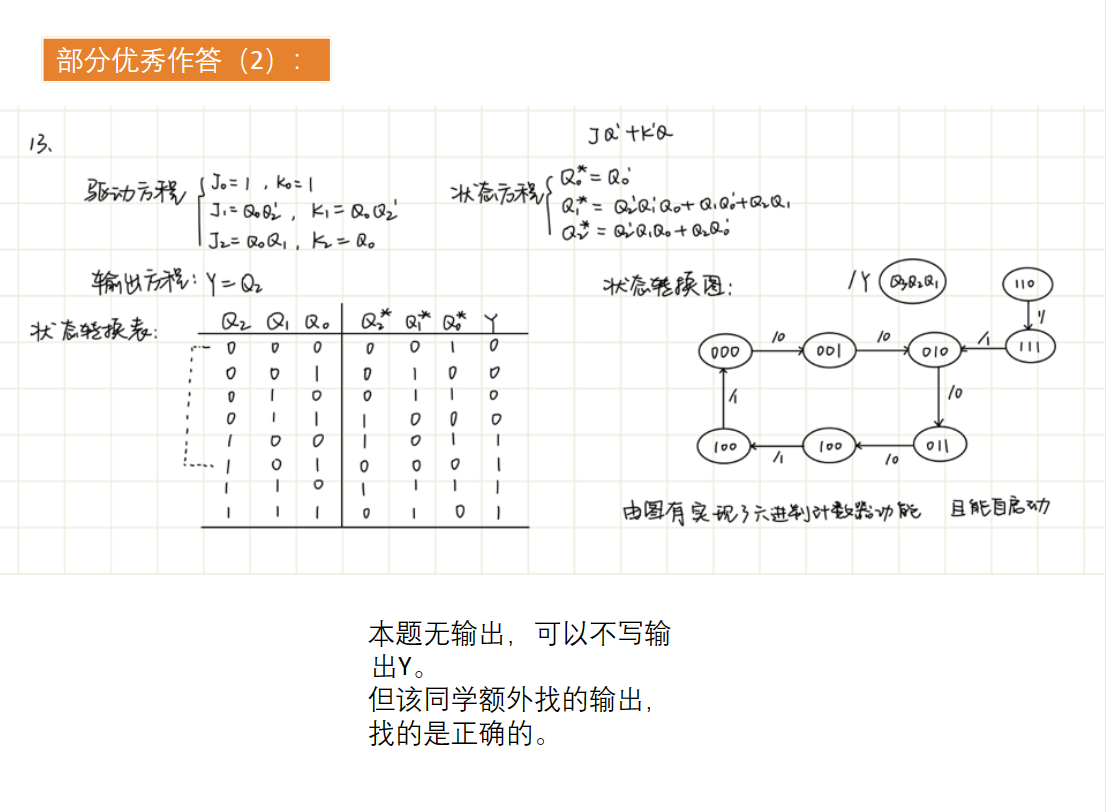 部分优秀作答（2）：
13、
JQ'+K'Q
驱动方程 { J₀=1 , K₀=1
J₁=Q₀Q₂' , K₁=Q₀Q₂'
J₂=Q₀Q₁ , K₂=Q₀
状态方程 { Q₀*=Q₀'
Q₁*=Q₂'Q₁'Q₀+Q₁Q₀'+Q₂Q₁
Q₂*=Q₂'Q₁Q₀+Q₂Q₀'
输出方程: Y=Q₂
状态转换表:
Q₂ Q₁ Q₀ Q₂* Q₁* Q₀* Y
0 0 0 0 0 1 0
0 0 1 0 1 0 0
0 1 0 0 1 1 0
0 1 1 1 0 0 0
1 0 0 1 0 1 1
1 0 1 0 0 0 1
1 1 0 1 1 1 1
1 1 1 0 1 0 1
状态转换图:
/Y Q₃Q₂Q₁ 110
/1
000 /0 001 /0 010 /1 111
/1 /0
100 /1 100 /0 011
由图有实现了六进制计数器功能 且能自启动
本题无输出，可以不写输
出Y。
但该同学额外找的输出，
找的是正确的。